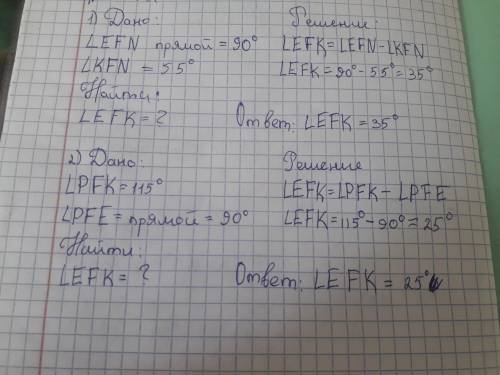 1) Дано:
∠EFN прямой = 90°
∠KFN = 55°
Найти:
∠EFK = ?
Решение:
∠EFK = ∠EFN - ∠KFN
∠EFK = 90° - 55° = 35°
Ответ: ∠EFK = 35°
2) Дано:
∠PFK = 115°
∠PFE = прямой = 90°
Найти:
∠EFK = ?
Решение
∠EFK = ∠PFK - ∠PFE
∠EFK = 115° - 90° = 25°
Ответ: ∠EFK = 25°